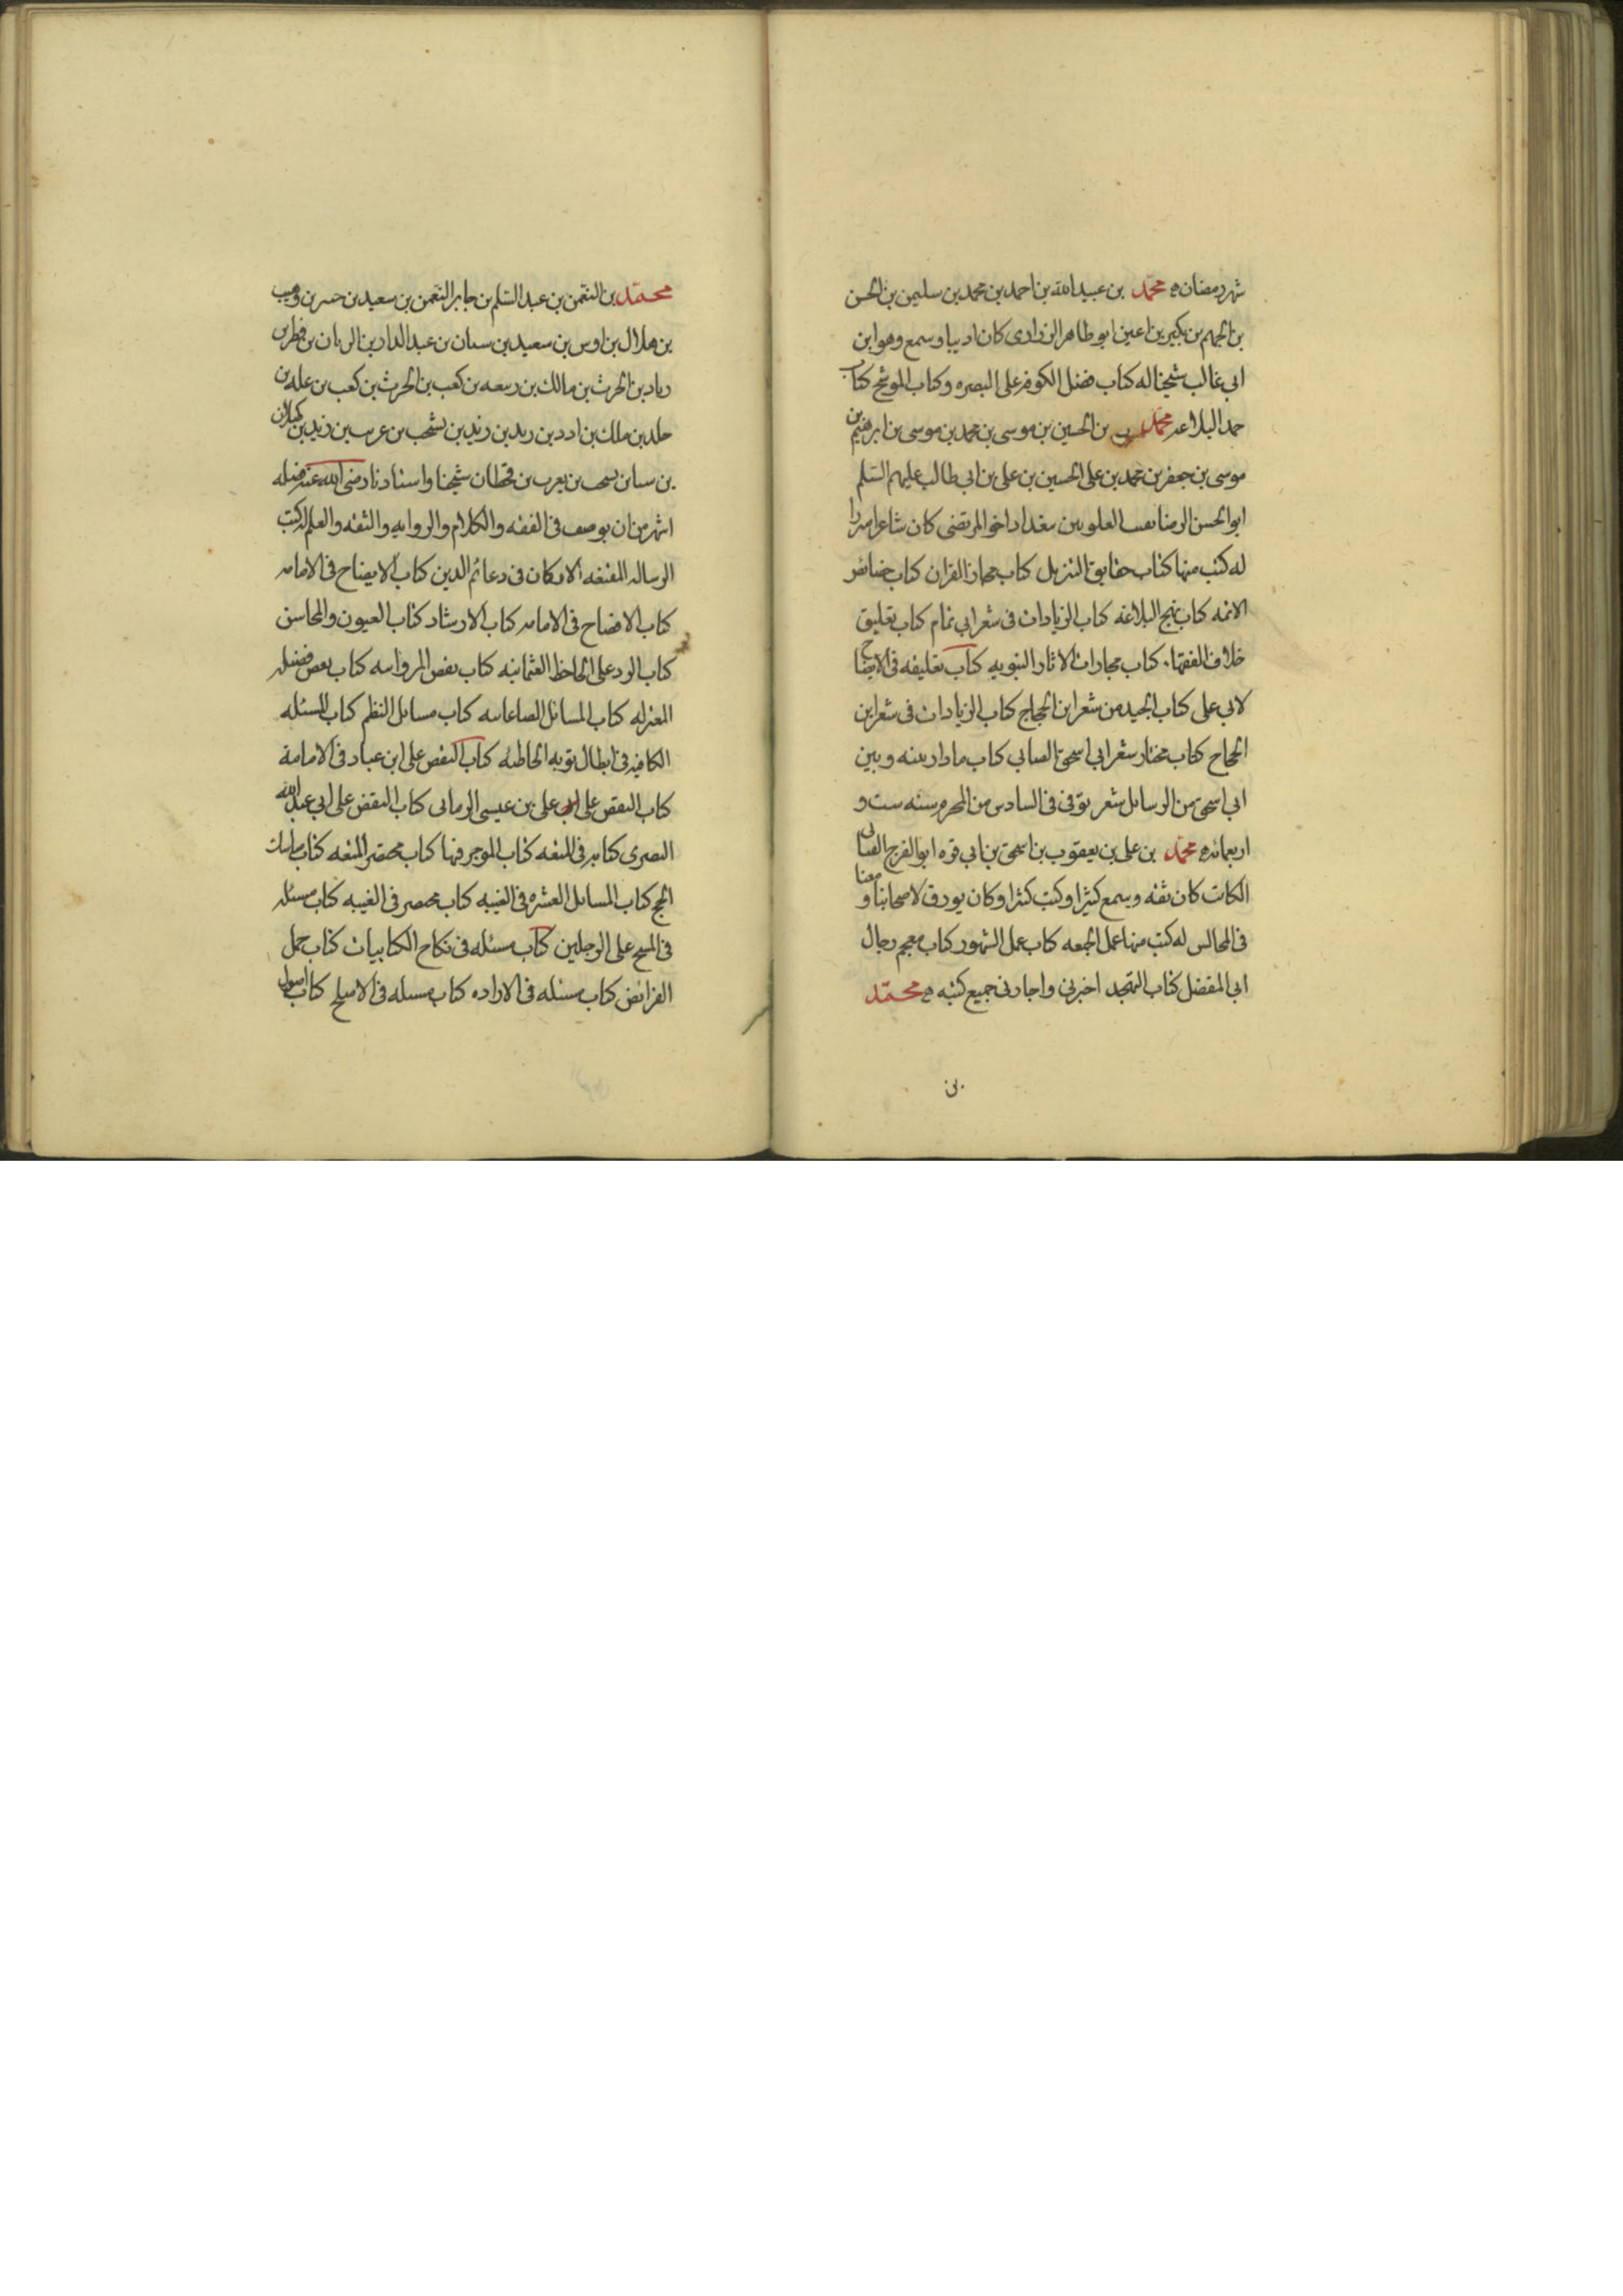 شهر رمضان ه محمد بن عبيد الله بن احمد بن محمد بن سليمن بن الحسن
بن الجهم بن بكير بن اعين ابو طاهر الزرارى كان اديبا وسمع وهو ابن
ابى غالب شيخنا له كتاب فضل الكوفه على البصره وكتاب الموشح كتاب
حمد البلاغه محمد بن الحسين بن موسى بن محمد بن موسى بن ابرهيم بن
موسى بن جعفر بن محمد بن على الحسين بن على بن ابى طالب عليهم السلم
ابو الحسن الرضا نقيب العلويين ببغداد اخو المرتضى كان شاعرا مبرزا
له كتب منها كتاب حقايق التنزيل كتاب مجاز القران كتاب خصائص
الائمه كتاب نهج البلاغه كتاب الزيادات فى شعر ابى تمام كتاب تعليق
خلاف الفقهاء كتاب مجازات الاثار النبويه كتاب تعليقه فى الايضاح
لابى على كتاب الجيد من شعر ابن الحجاج كتاب الزيادات فى شعر ابن
الحجاج كتاب مختار شعر ابى اسحق الصابى كتاب ما دار بينه وبين
ابى اسحق من الرسائل شعر توفى فى السادس من المحرم سنه ست و
اربعمائه ه محمد بن على بن يعقوب بن اسحق بن ابى قره ابو الفرج القنانى
الكاتب كان ثقه وسمع كثيرا وكتب كثيرا وكان يورق لاصحابنا ومعنا
فى المجالس له كتب منها عمل الجمعه كتاب عمل الشهور كتاب معجم رجال
ابى المفضل كتاب التهجد اخبرنى واجازنى جميع كتبه ه محمد
بن
محمد بن النعمن بن عبد السلم بن جابر النعمن بن سعيد بن جبير بن وهيب
بن هلال بن اوس بن سعيد بن سنان بن عبد الدار بن الريان بن فطر بن
زياد بن الحرث بن مالك بن ربيعه بن كعب بن الحرث بن كعب بن عله بن
خلد بن ملك بن ادد بن زيد بن يشجب بن عريب بن زيد بن كهلان
بن سبا بن يشجب بن يعرب بن قحطان شيخنا واستادنا رضى الله عنه فضله
اشهر من ان يوصف فى الفقه والكلام والروايه والثقه والعلم له كتب
الرساله المقنعه الاركان فى دعائم الدين كتاب الايضاح فى الامامه
كتاب الافصاح فى الامامه كتاب الارشاد كتاب العيون والمحاسن
كتاب الرد على الجاحظ العثمانيه كتاب نقض المروانيه كتاب نقض فضيله
المعتزله كتاب المسائل الصاغانيه كتاب مسائل النظم كتاب المسئله
الكافيه فى ابطال توبه الخاطئه كتاب النقض على ابن عباد فى الامامة
كتاب النقض على على بن عيسى الرمانى كتاب النقض على ابى عبد الله
البصرى كتابه فى المتعه كتاب الموجز فيها كتاب مختصر المتعه كتاب مناسك
الحج كتاب المسائل العشره فى الغيبه كتاب مختصر فى الغيبه كتاب مسئله
فى المسح على الرجلين كتاب مسئله فى نكاح الكتابيات كتاب جمل
الفرائض كتاب مسئله فى الاراده كتاب مسئله فى الاصلح كتاب اصول